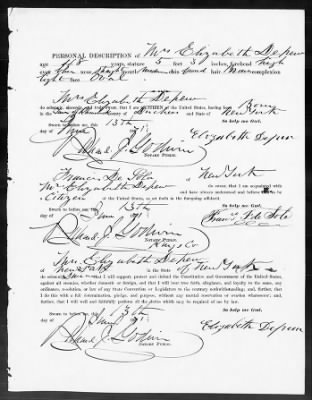 PERSONAL DESCRIPTION of Mrs Elizabeth Depew
age 48 years, stature 5 feet 3 inches, forehead high
nose straight mouth medium chin round hair Brown complexion
light face Oval
Mrs Elizabeth Depew
do solemnly, sincerely, and truly swear, that I am CITIZEN of the United States, having been Born
in the Town of County of Duchess State of New York
So help me God.
Sworn to before me, this 13th
day of
Elizabeth Depew
Richard J. Godwin
NOTARY PUBLIC.
Francis De Sola of New York
do swear, that I am acquainted with
Mrs Elizabeth Depew and have always understood and believe to be
Citizen of the United States, as set forth in the foregoing affidavit.
So help me God.
Sworn to before me, this 13th
day of June 71
Franc. De Sola
Richard J. Godwin
NOTARY PUBLIC.
Kings Co
Mrs. Elizabeth Depew
of New York in the State of New York
do solemnly swear that I will support, protect and defend the Constitution and Government of the United States,
against all enemies, whether domestic or foreign, and that I will bear true faith, allegiance, and loyalty to the same, any
ordinance, resolution, or law of any State Convention or Legislature to the contrary notwithstanding; and, further, that
I do this with a full determination, pledge, and purpose, without any mental reservation or evasion whatsoever; and,
further, that I will well and faithfully perform all the duties which may be required of me by law.
So help me God.
Sworn to before me, this 13th
day of June 71
Elizabeth Depew
Richard J. Godwin
NOTARY PUBLIC.